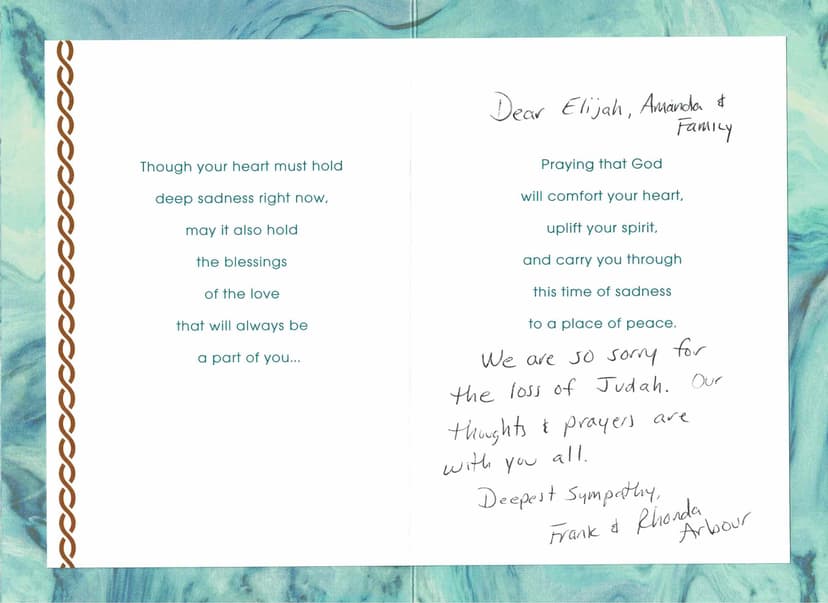 Though your heart must hold
deep sadness right now,
may it also hold
the blessings
of the love
that will always be
a part of you...
Dear Elijah, Amanda &
Family
Praying that God
will comfort your heart,
uplift your spirit,
and carry you through
this time of sadness
to a place of peace.
We are so sorry for
the loss of Judah. Our
thoughts & prayers are
with you all.
Deepest Sympathy,
Frank & Rhonda
Arbour